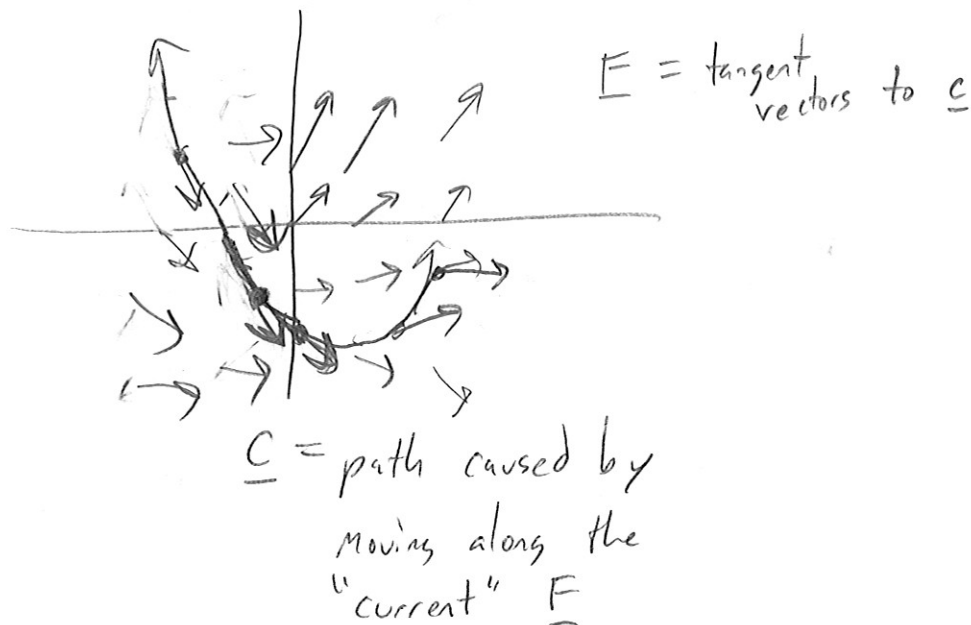 F = tangent
vectors to c
C = path caused by
moving along the
"current" F